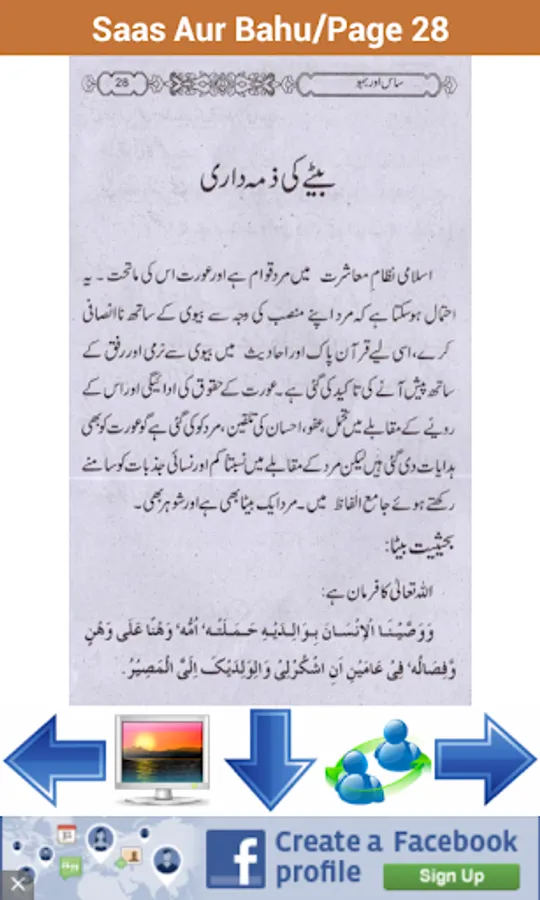 Saas Aur Bahu/Page 28
28
ساس اور بہو
بیٹے کی ذمہ داری
اسلامی نظامِ معاشرت میں مرد قوام ہے اور عورت اس کی ماتحت ۔ یہ
احتمال ہوسکتا ہے کہ مرد اپنے منصب کی وجہ سے بیوی کے ساتھ ناانصافی
کرے، اسی لیے قرآن پاک اور احادیث میں بیوی سے نرمی اور رفق کے
ساتھ پیش آنے کی تاکید کی گئی ہے۔ عورت کے حقوق کی ادائیگی اور اس کے
رویے کے مقابلے میں تحمل، عفو، احسان کی تلقین، مرد کو کی گئی ہے گو عورت کو بھی
ہدایات دی گئی ہیں لیکن مرد کے مقابلے میں نسبتاً کم اور نسائی جذبات کو سامنے
رکھتے ہوئے جامع الفاظ میں۔ مرد ایک بیٹا بھی ہے اور شوہر بھی۔
بحیثیت بیٹا:
اللہ تعالیٰ کا فرمان ہے:
وَوَصَّيْنَا الْاِنْسَانَ بِوَالِدَيْهِ حَمَلَتْهُ اُمُّهٗ وَهْنًا عَلٰى وَهْنٍ
وَّفِصَالُهٗ فِىْ عَامَيْنِ اَنِ اشْكُرْلِىْ وَالِوَلِدَيْكَ اِلَىَّ الْمَصِيْرُ.
Create a Facebook
profile
Sign Up
f